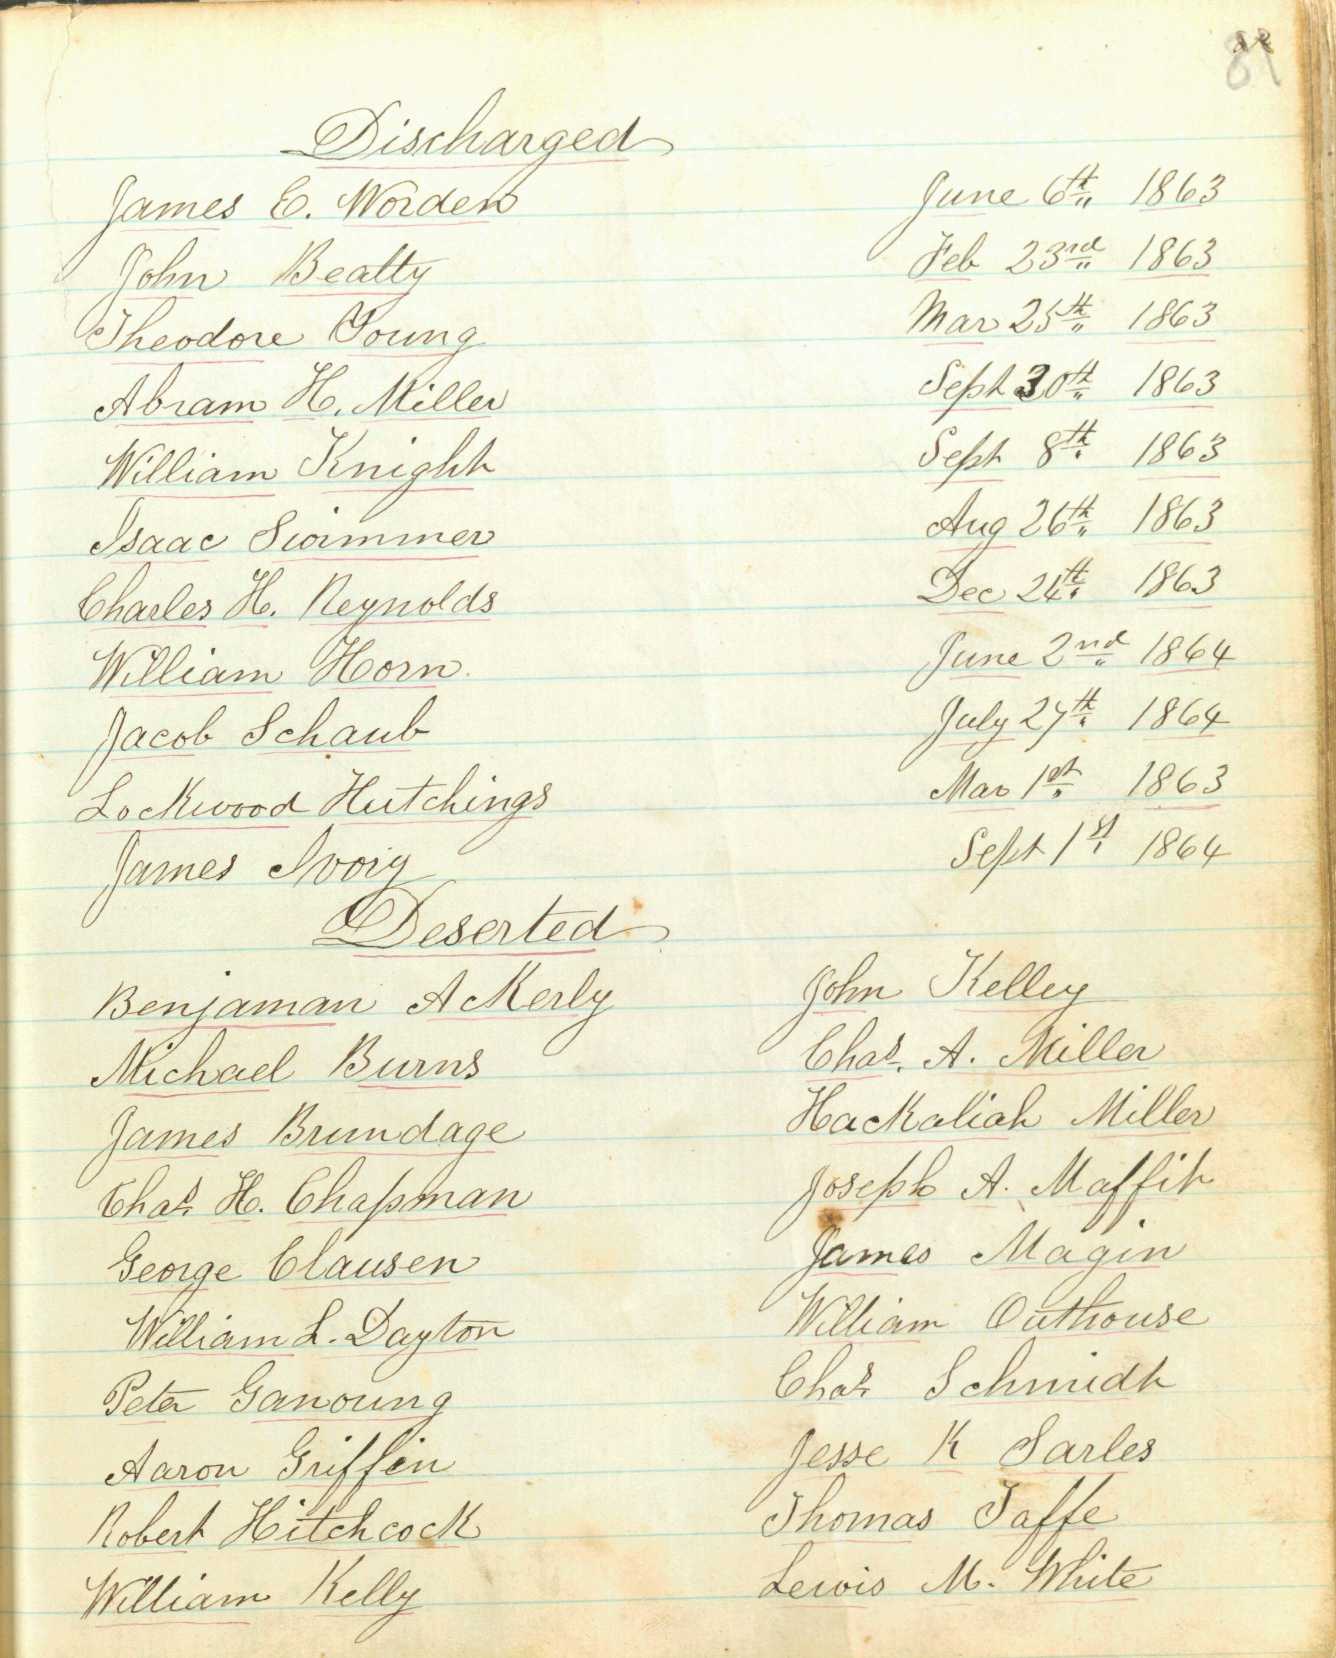 Discharged
James E. Worden June 6th 1863
John Beatty Feb 23rd 1863
Theodore Young Mar 25th 1863
Abram H. Miller Sept 30th 1863
William Knight Sept 8th 1863
Isaac Swimmer Aug 26th 1863
Charles H. Reynolds Dec 24th 1863
William Horn June 2nd 1864
Jacob Schaub July 27th 1864
Lockwood Hutchings Mar 1st 1863
James Ivory Sept 1st 1864
Deserted
Benjaman Ackerly John Kelley
Michael Burns Chas. A. Miller
James Brundage Hackaliah Miller
Chas. H. Chapman Joseph A. Maffit
George Clausen James Magin
William L. Dayton William Outhouse
Peter Ganoung Chas. Schmidt
Aaron Griffin Jesse K Sarles
Robert Hitchcock Thomas Taffe
William Kelly Lewis M. White